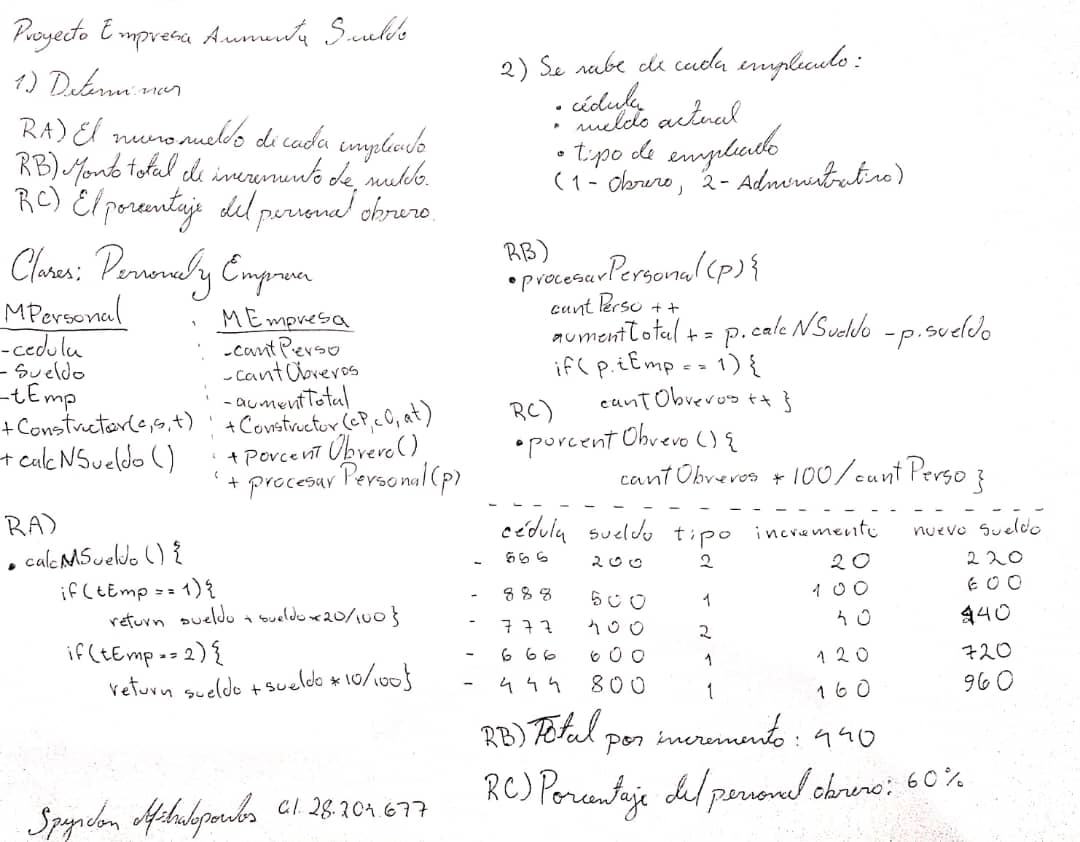 Proyecto Empresa Aumenta Sueldo
1) Determinar
RA) El nuevo sueldo de cada empleado
RB) Monto total de incremento de sueldo.
RC) El porcentaje del personal obrero.
Clases: Personal y Empresa
MPersonal
-cedula
-Sueldo
-tEmp
+Constructor(c,s,t)
+calcNSueldo()
MEmpresa
-cantPerso
-cantObreros
-aumentTotal
+Constructor(cP,cO,at)
+porcentObrero()
+procesarPersonal(p)
RA)
• calcNSueldo(){
if(tEmp == 1){
return sueldo + sueldo*20/100}
if(tEmp == 2){
return sueldo + sueldo * 10/100}
Spyridon Mihalopoulos
2) Se sabe de cada empleado:
• cédula
• sueldo actual
• tipo de empleado
(1 - Obrero, 2 - Administrativo)
RB)
• procesarPersonal(p){
cantPerso ++
aumentTotal += p.calcNSueldo - p.sueldo
if(p.tEmp == 1){
cantObreros ++ }
RC)
• porcentObrero(){
cantObreros * 100/cantPerso }
cédula sueldo tipo incremento nuevo sueldo
- 200 2 20 220
- 888 500 1 100 600
- 777 400 2 40 440
- 666 600 1 120 720
- 444 800 1 160 960
RB) Total por incremento: 440
RC) Porcentaje del personal obrero: 60%